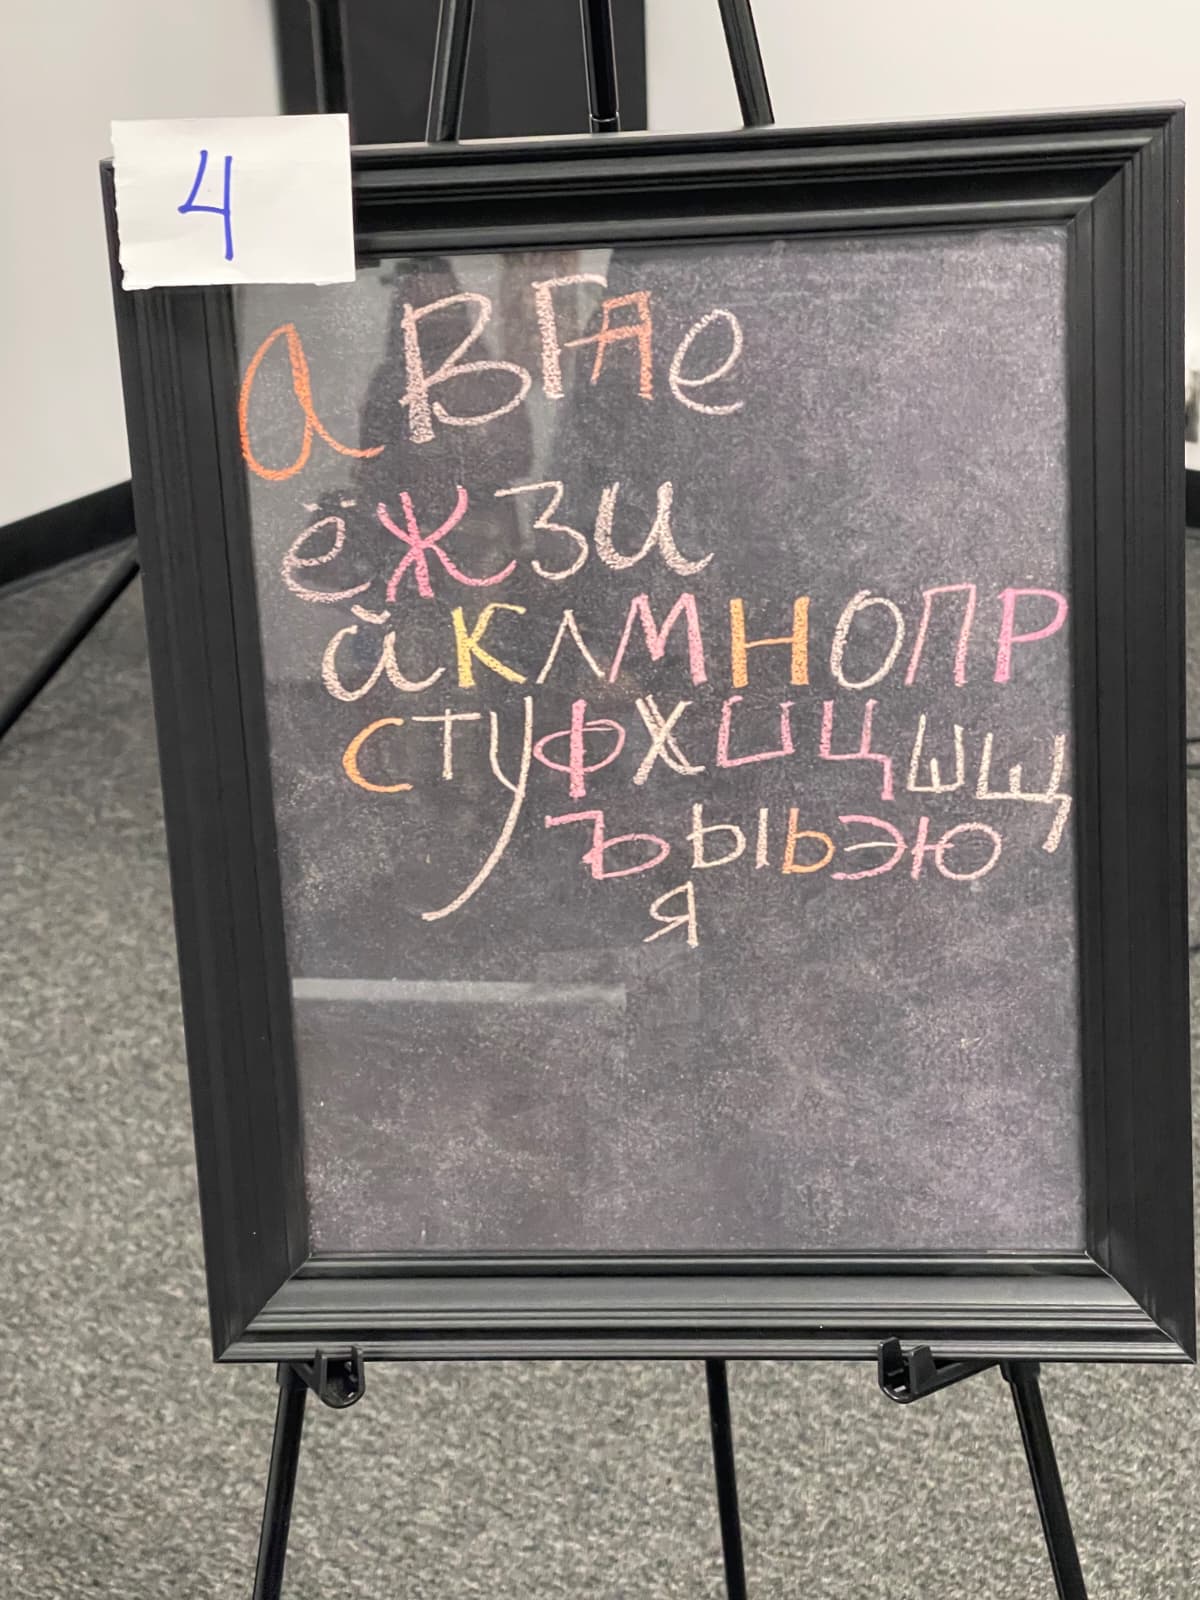 4
а В Г Д е
ё ж з и
й к л м н о п р
с т у ф х ц ц ш щ
ъ ы ь э ю
я